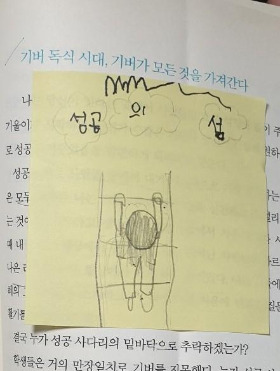 기버 독식 시대, 기버가 모든 것을 가져간다
나
성공 의 섬
기울이 주
로 성공
성공
은 모두
는 것이
때 내
나은
결국 누가 성공 사다리의 밑바닥으로 추락하겠는가?
학생들은 거의 만장일치로 기버를 지목했다.